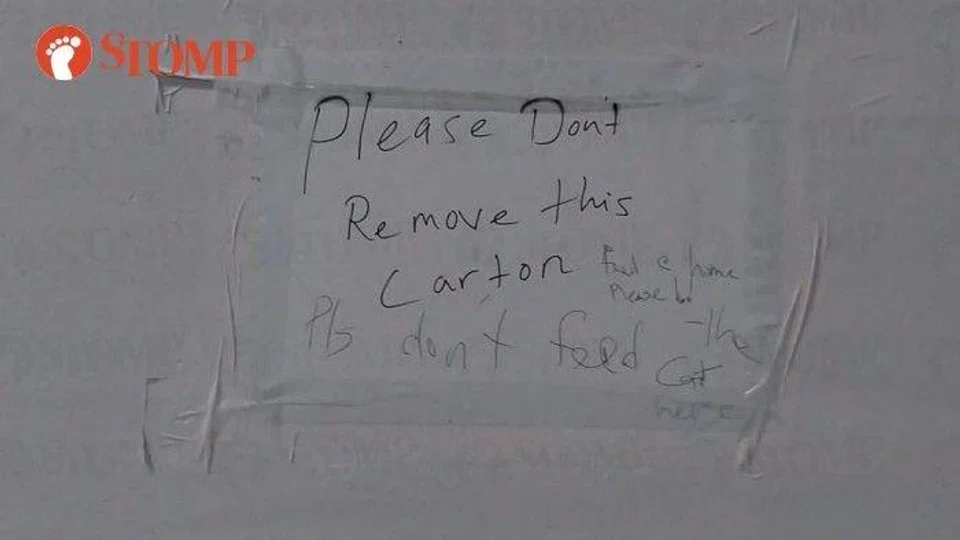 STOMP
Please Don't
Remove this
Carton
Feed @ home
Please
Pls don't feed the
Cat
here